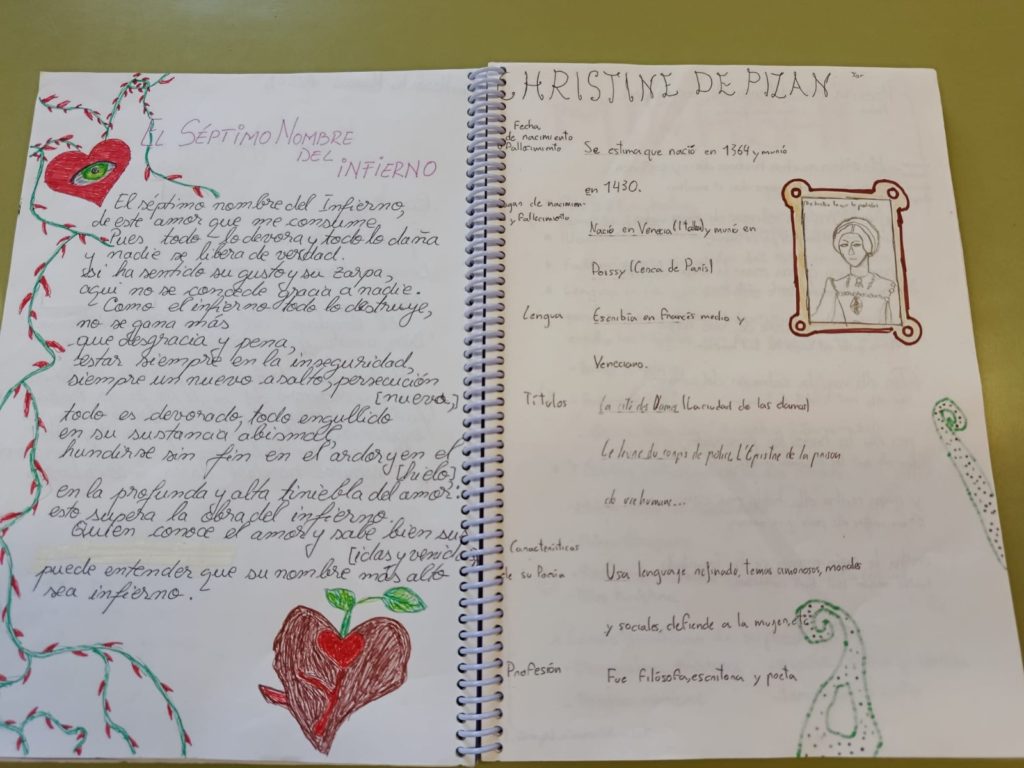 EL SÉPTIMO NOMBRE
DEL
INFIERNO
El séptimo nombre del Infierno,
de este amor que me consume,
Pues todo lo devora y todo lo daña
y nadie se libera de verdad.
Si ha sentido su gusto y su zarpa,
aquí no se concede gracia a nadie.
Como el infierno todo lo destruye,
no se gana más
que desgracia y pena,
estar siempre en la inseguridad,
siempre un nuevo asalto, persecución
[nueva,]
todo es devorado, todo engullido
en su sustancia abismal,
hundirse sin fin en el ardor y en el
[hielo,]
en la profunda y alta tiniebla del amor:
esto supera la obra del infierno.
Quien conoce el amor y sabe bien sus
[idas y venidas,
puede entender que su nombre más alto
sea infierno.
CHRISTINE DE PIZAN
Fecha
de nacimiento
y Fallecimiento
Se estima que nació en 1364 y murió
en 1430.
Lugar de nacimiento
y Fallecimiento
Nació en Venecia (Italia) y murió en
Poissy (Cerca de París)
Lengua
Escribía en Francés medio y
Veneciano.
Títulos
La cité des Dames (La ciudad de las damas)
Le livre du corps de police, L'Epistre de la prison
de vie humaine...
Características
de su Poesía
Usa lenguaje refinado, temas amorosos, morales
y sociales, defiende a la mujer, etc
Profesión
Fue filósofa, escritora y poeta